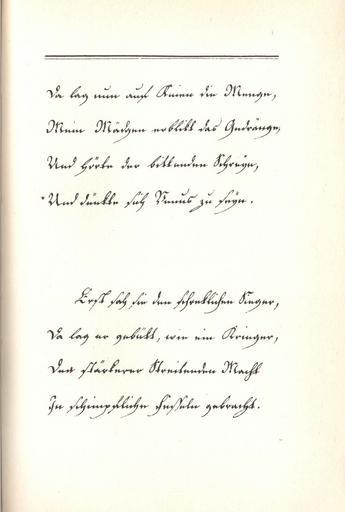 Da lag nun auf Knien die Menge,
Mein Mädgen erblikt das Gedränge,
Und hörte der bittenden Schreyn,
Und dünkte sich Venus zu seyn.
Erst sah sie den schreklichen Sieger,
Da lag er gebükt, wie ein Krieger,
Den stärkerer Streitenden Macht
In schimpfliche Fesseln gebracht.